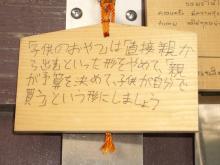 「子供のおやつ」は「直接親か
ら出すといった形をやめて、「親
が予算を決めて、子供が自分で
買う」という形にしましょう